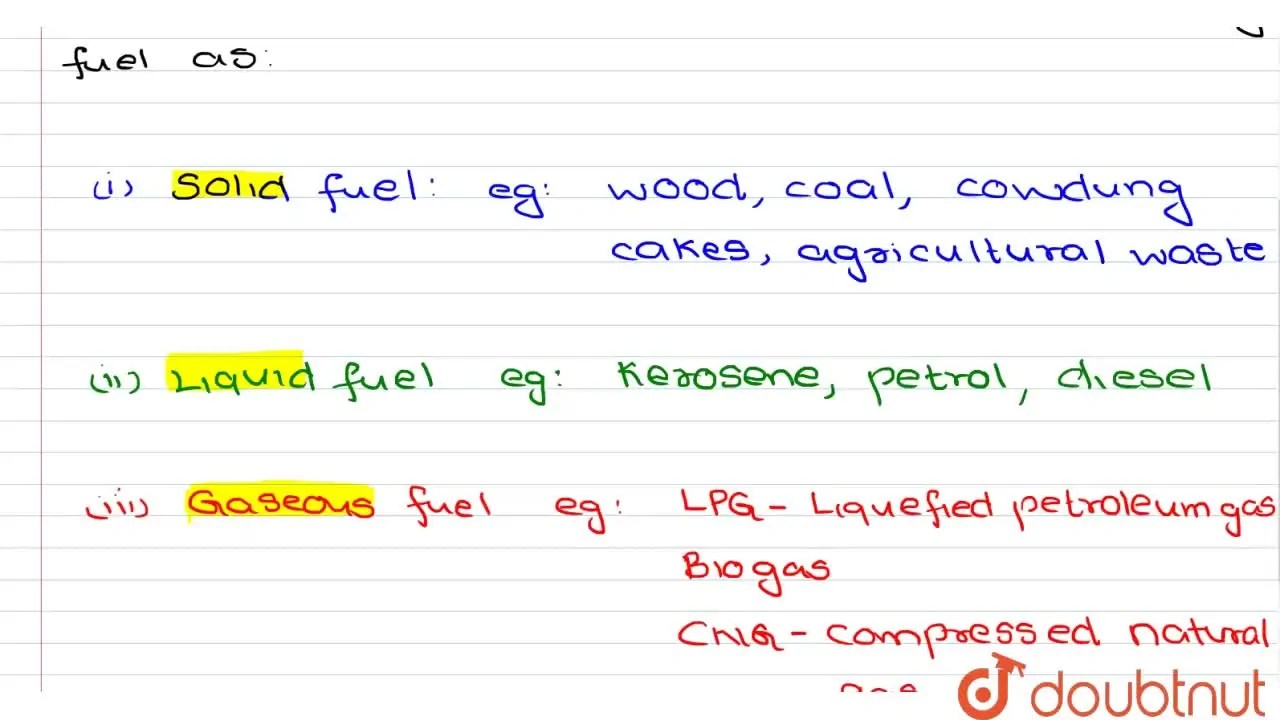 fuel as:
(i) Solid fuel: eg: wood, coal, cowdung
cakes, agricultural waste
(ii) Liquid fuel eg: Kerosene, petrol, diesel
(iii) Gaseous fuel eg: LPG - Liquefied petroleum gas
Biogas
CNG - compressed natural
gas
doubtnut